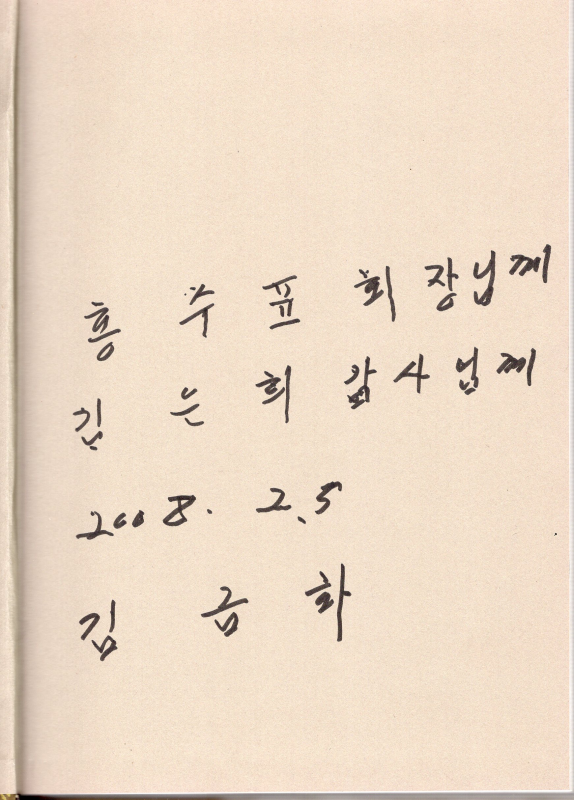 홍 수 표 회장님께
김 은 희 감사님께
2008. 2.5
김 금 화